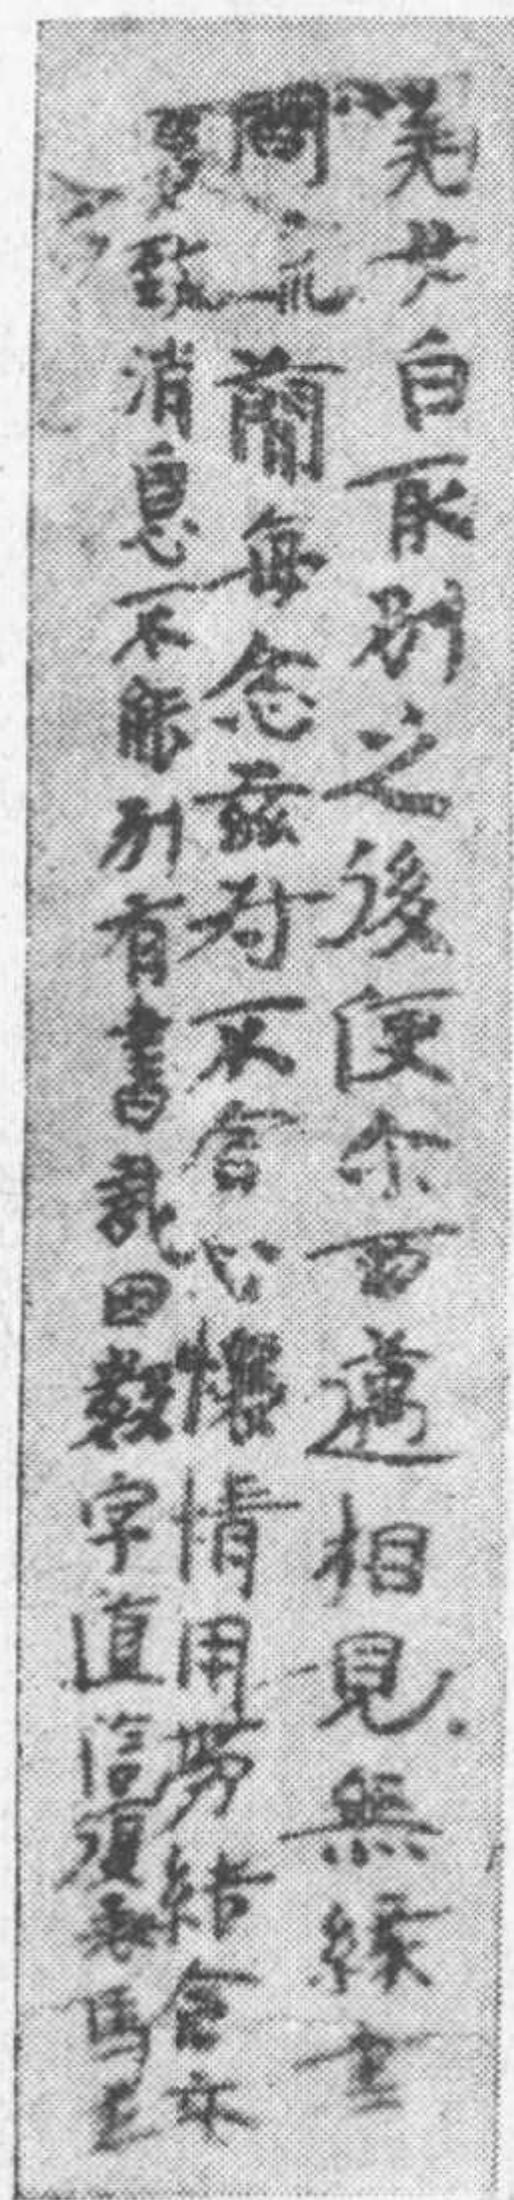 羌女白取別之後便尒西邁相見無緣書
問疏簡每念茲對不舍心懷情用勞結倉卒
復致消息不能別有書裁因數字直信復表馬羌